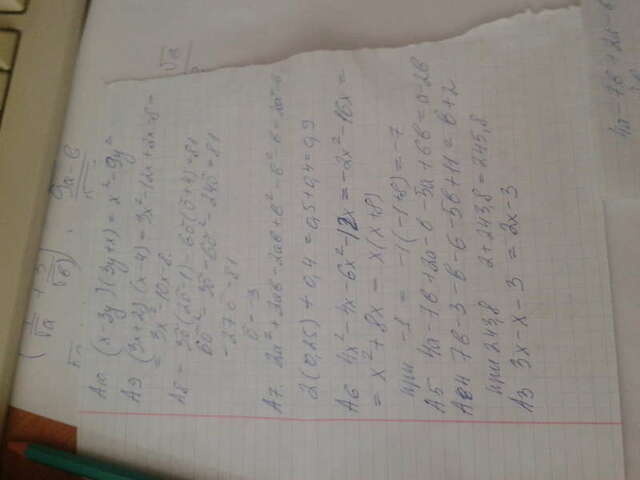 1/√a + 3/√b
9a-b
А10. (x-3y)(3y+x) = x²-9y²
А9 (3x+2)(x-4) = 3x²-12x+2x-8 =
= 3x²-10x-8.
А8 = 3б(2б-1)-6б(б+4)=81
6б²-3б-6б²-24б=81
-27б=81
б=-3
А7. 2a²+2ab-2ab+b²-b²-b=2a²-b
2(0,25)+0,4=0,5+0,4=0,9
А6 4x²-4x-6x²-12x=-2x²-16x=
= x²+8x = x(x+8)
при -1 = -1(-1+8)=-7
А5 4a-7b+2a-b-5a+6b=a-2b
А4 7b-3-b-6-5b+11=b+2
при 243,8 2+243,8=245,8
А3 3x-x-3 = 2x-3
4a-7b+2a-b